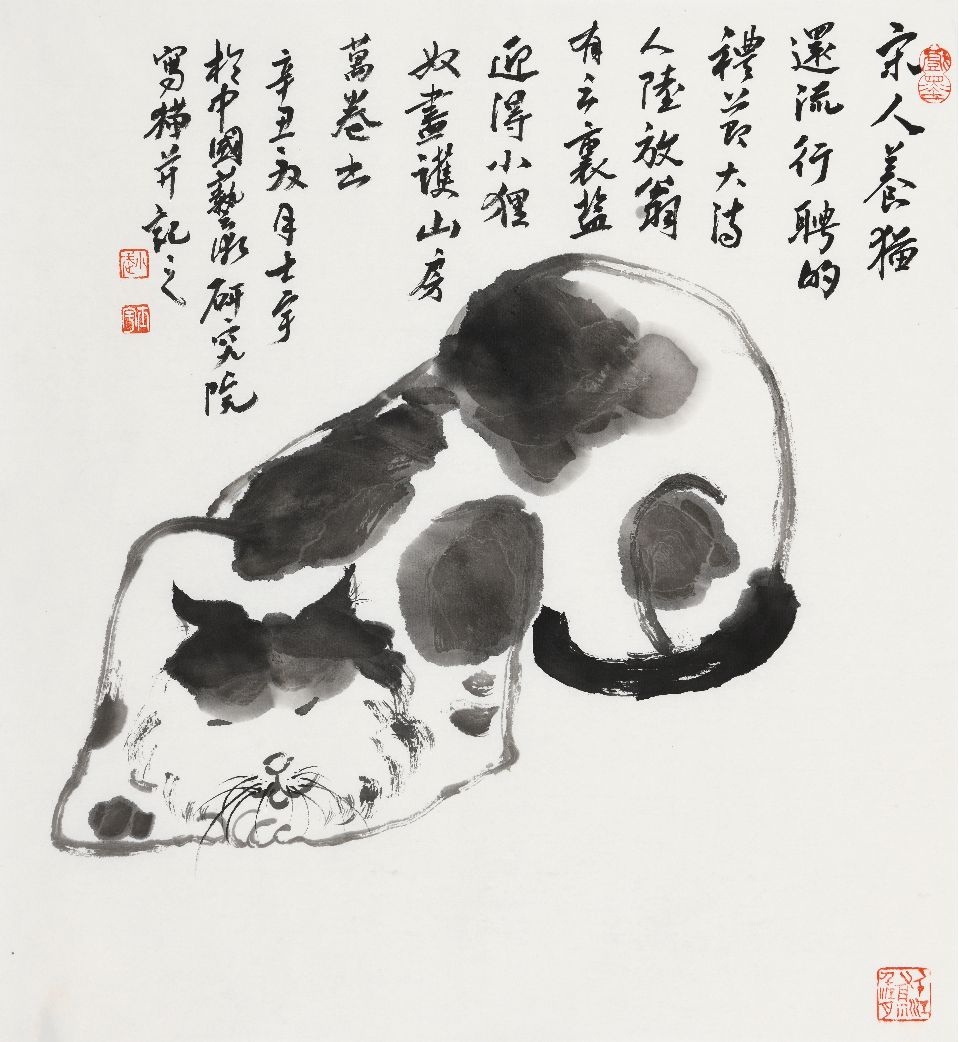 宋人養猫
還流行聘的
禮節大詩
人陸放翁
有云裹盐
迎得小狸
奴盡護山房
萬卷书
辛丑之月士宇
於中國藝術研究院
寫猫并記之
戲墨